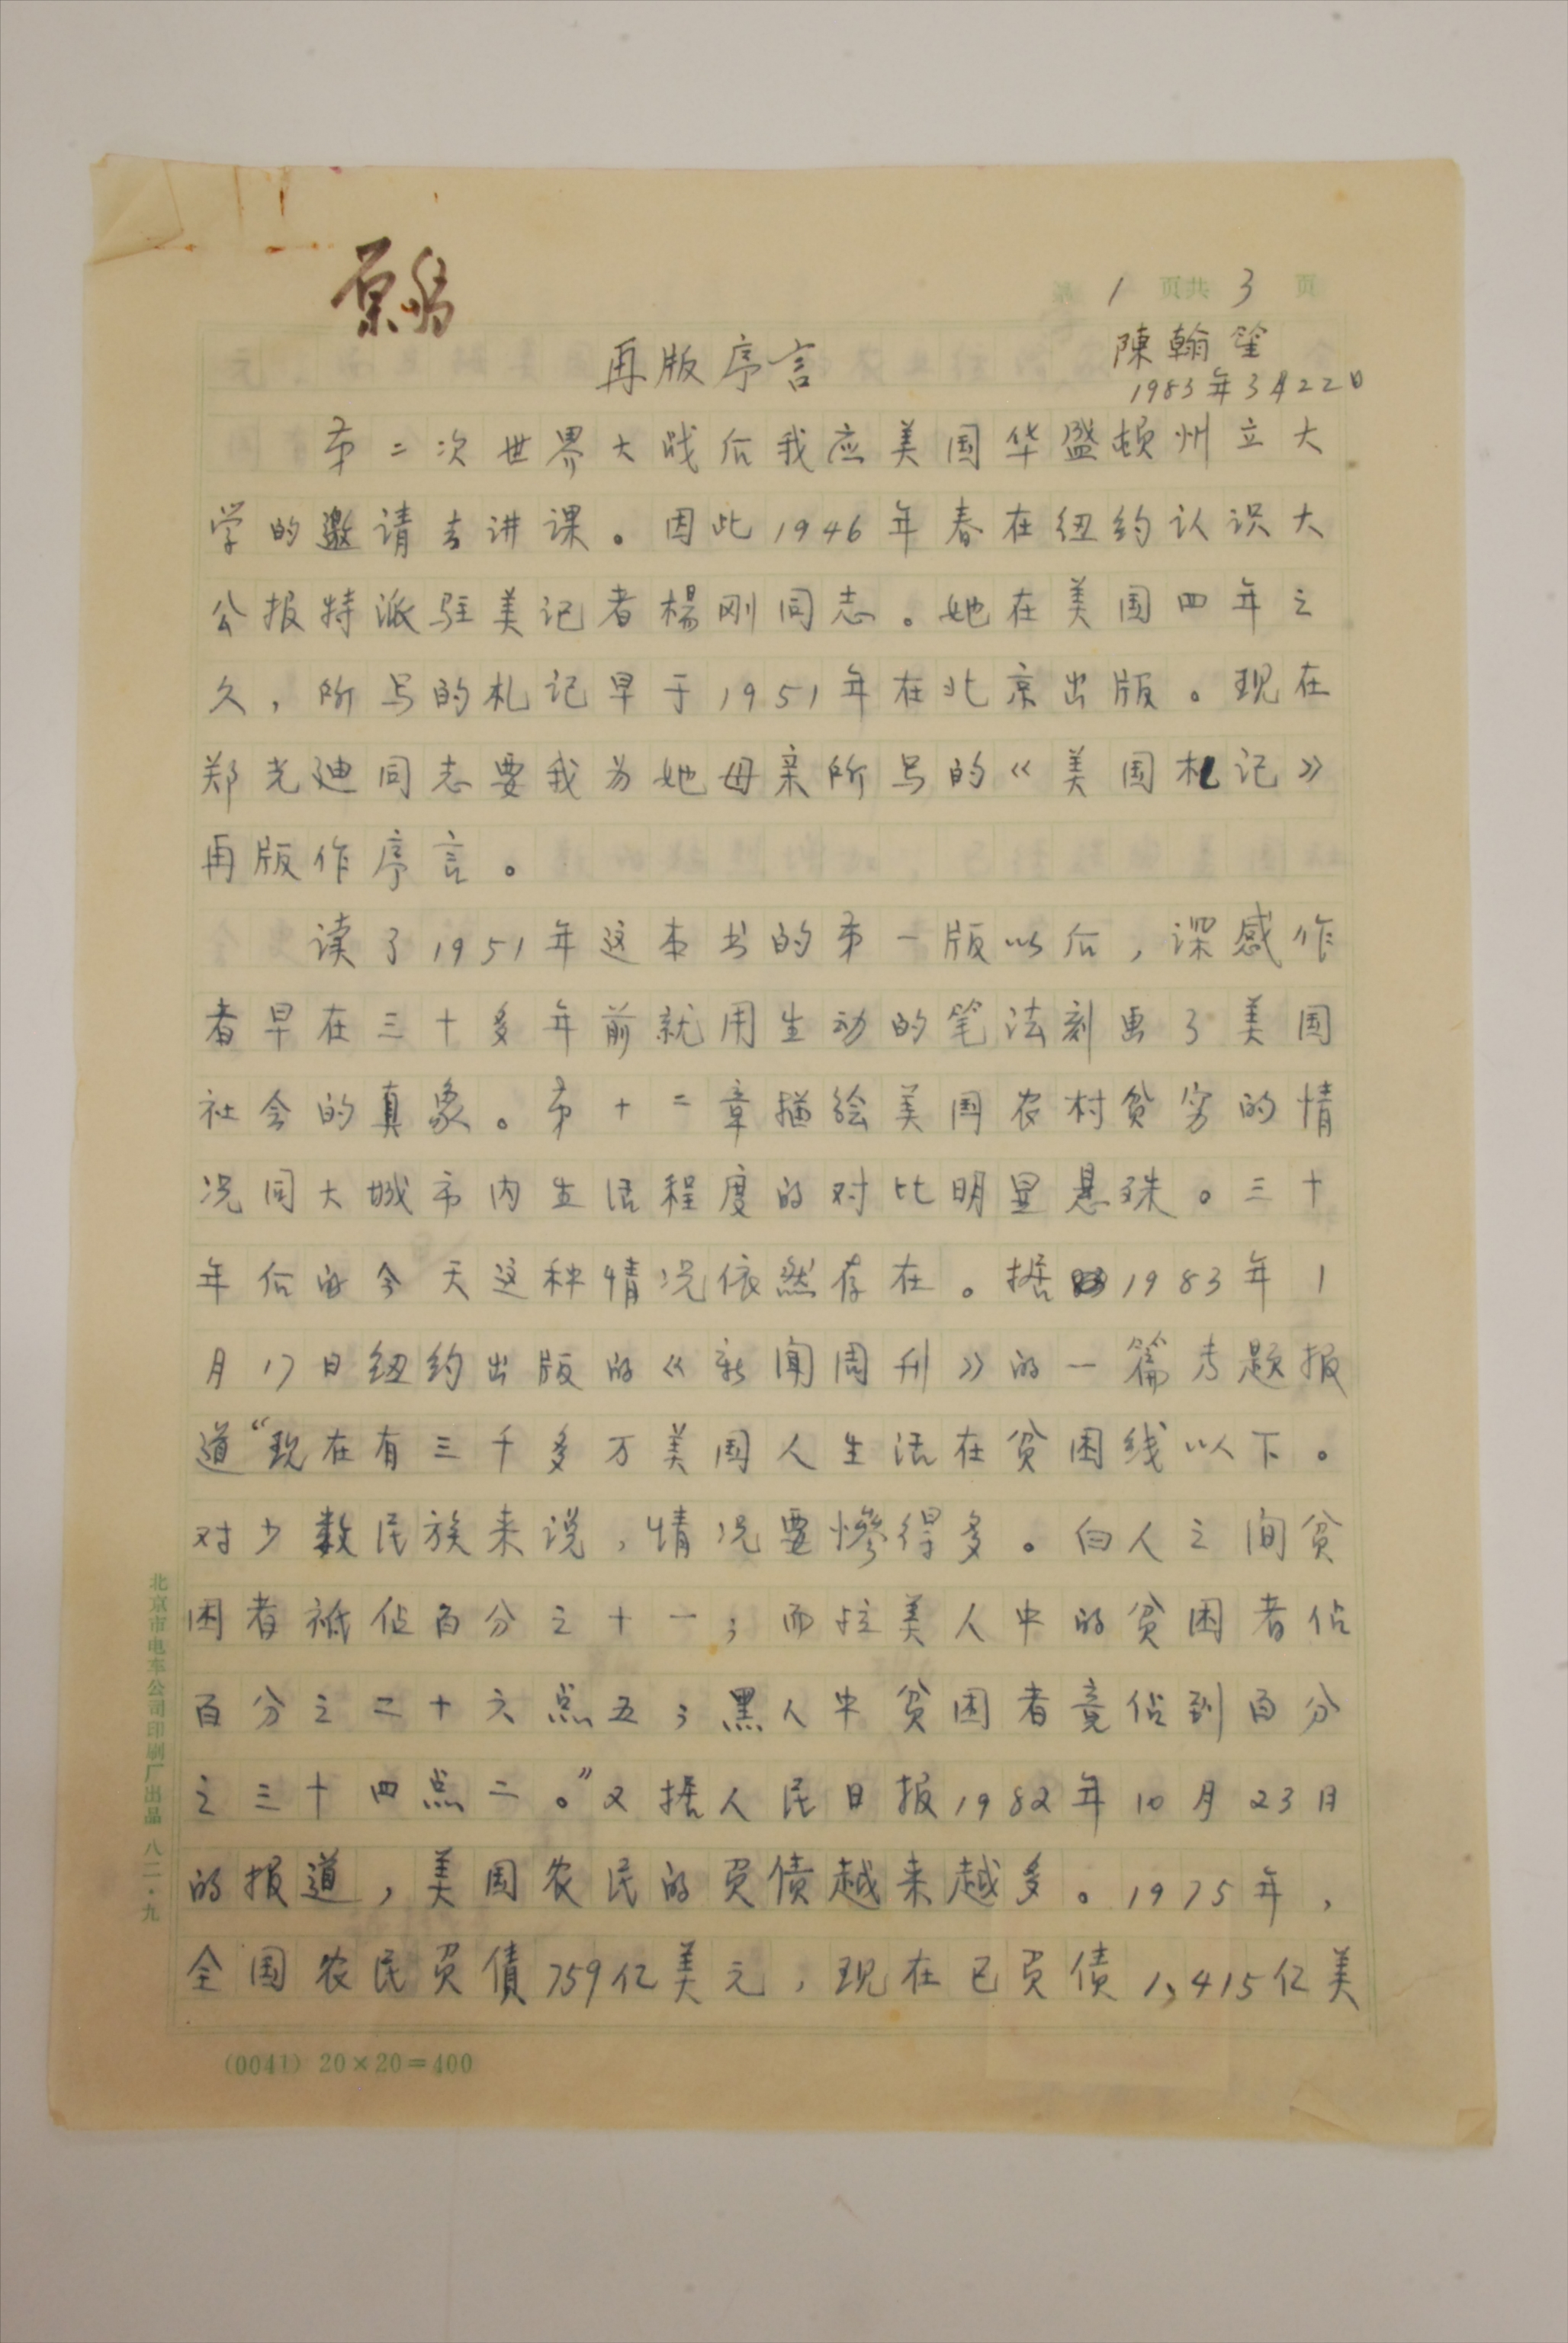 原稿
第 1 页共 3 页
再版序言
陳翰笙
1983年3月22日
第二次世界大战后我应美国华盛顿州立大
学的邀请去讲课。因此1946年春在纽约认识大
公报特派驻美记者楊刚同志。她在美国四年之
久，所写的札记早于1951年在北京出版。现在
郑光廸同志要我为她母亲所写的《美国札记》
再版作序言。
读了1951年这本书的第一版以后，深感作
者早在三十多年前就用生动的笔法刻画了美国
社会的真象。第十二章描绘美国农村贫穷的情
况同大城市内生活程度的对比明显悬殊。三十
年后的今天这种情况依然存在。据1983年1
月17日纽约出版的《新闻周刊》的一篇专题报
道“现在有三千多万美国人生活在贫困线以下。
对少数民族来说，情况要慘得多。白人之间贫
困者祗佔百分之十一；而拉美人中的贫困者佔
百分之二十六点五；黑人中贫困者竟佔到百分
之三十四点二。”又据人民日报1982年10月23日
的报道，美国农民的负债越来越多。1975年，
全国农民负債759亿美元，现在已负债1,415亿美
(0041) 20×20=400
北京市电车公司印刷厂出品 八二·九